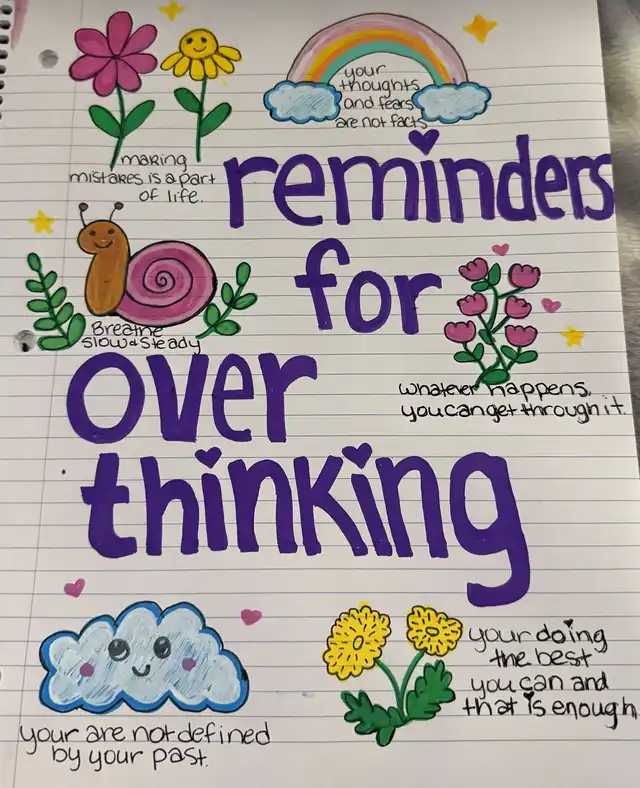 your
thoughts
and fears
are not facts
making
mistakes is a part
of life.
reminders
for
Breathe
slow & steady
whatever happens,
you can get through it.
over
thinking
your doing
the best
you can and
that is enough.
your are not defined
by your past.